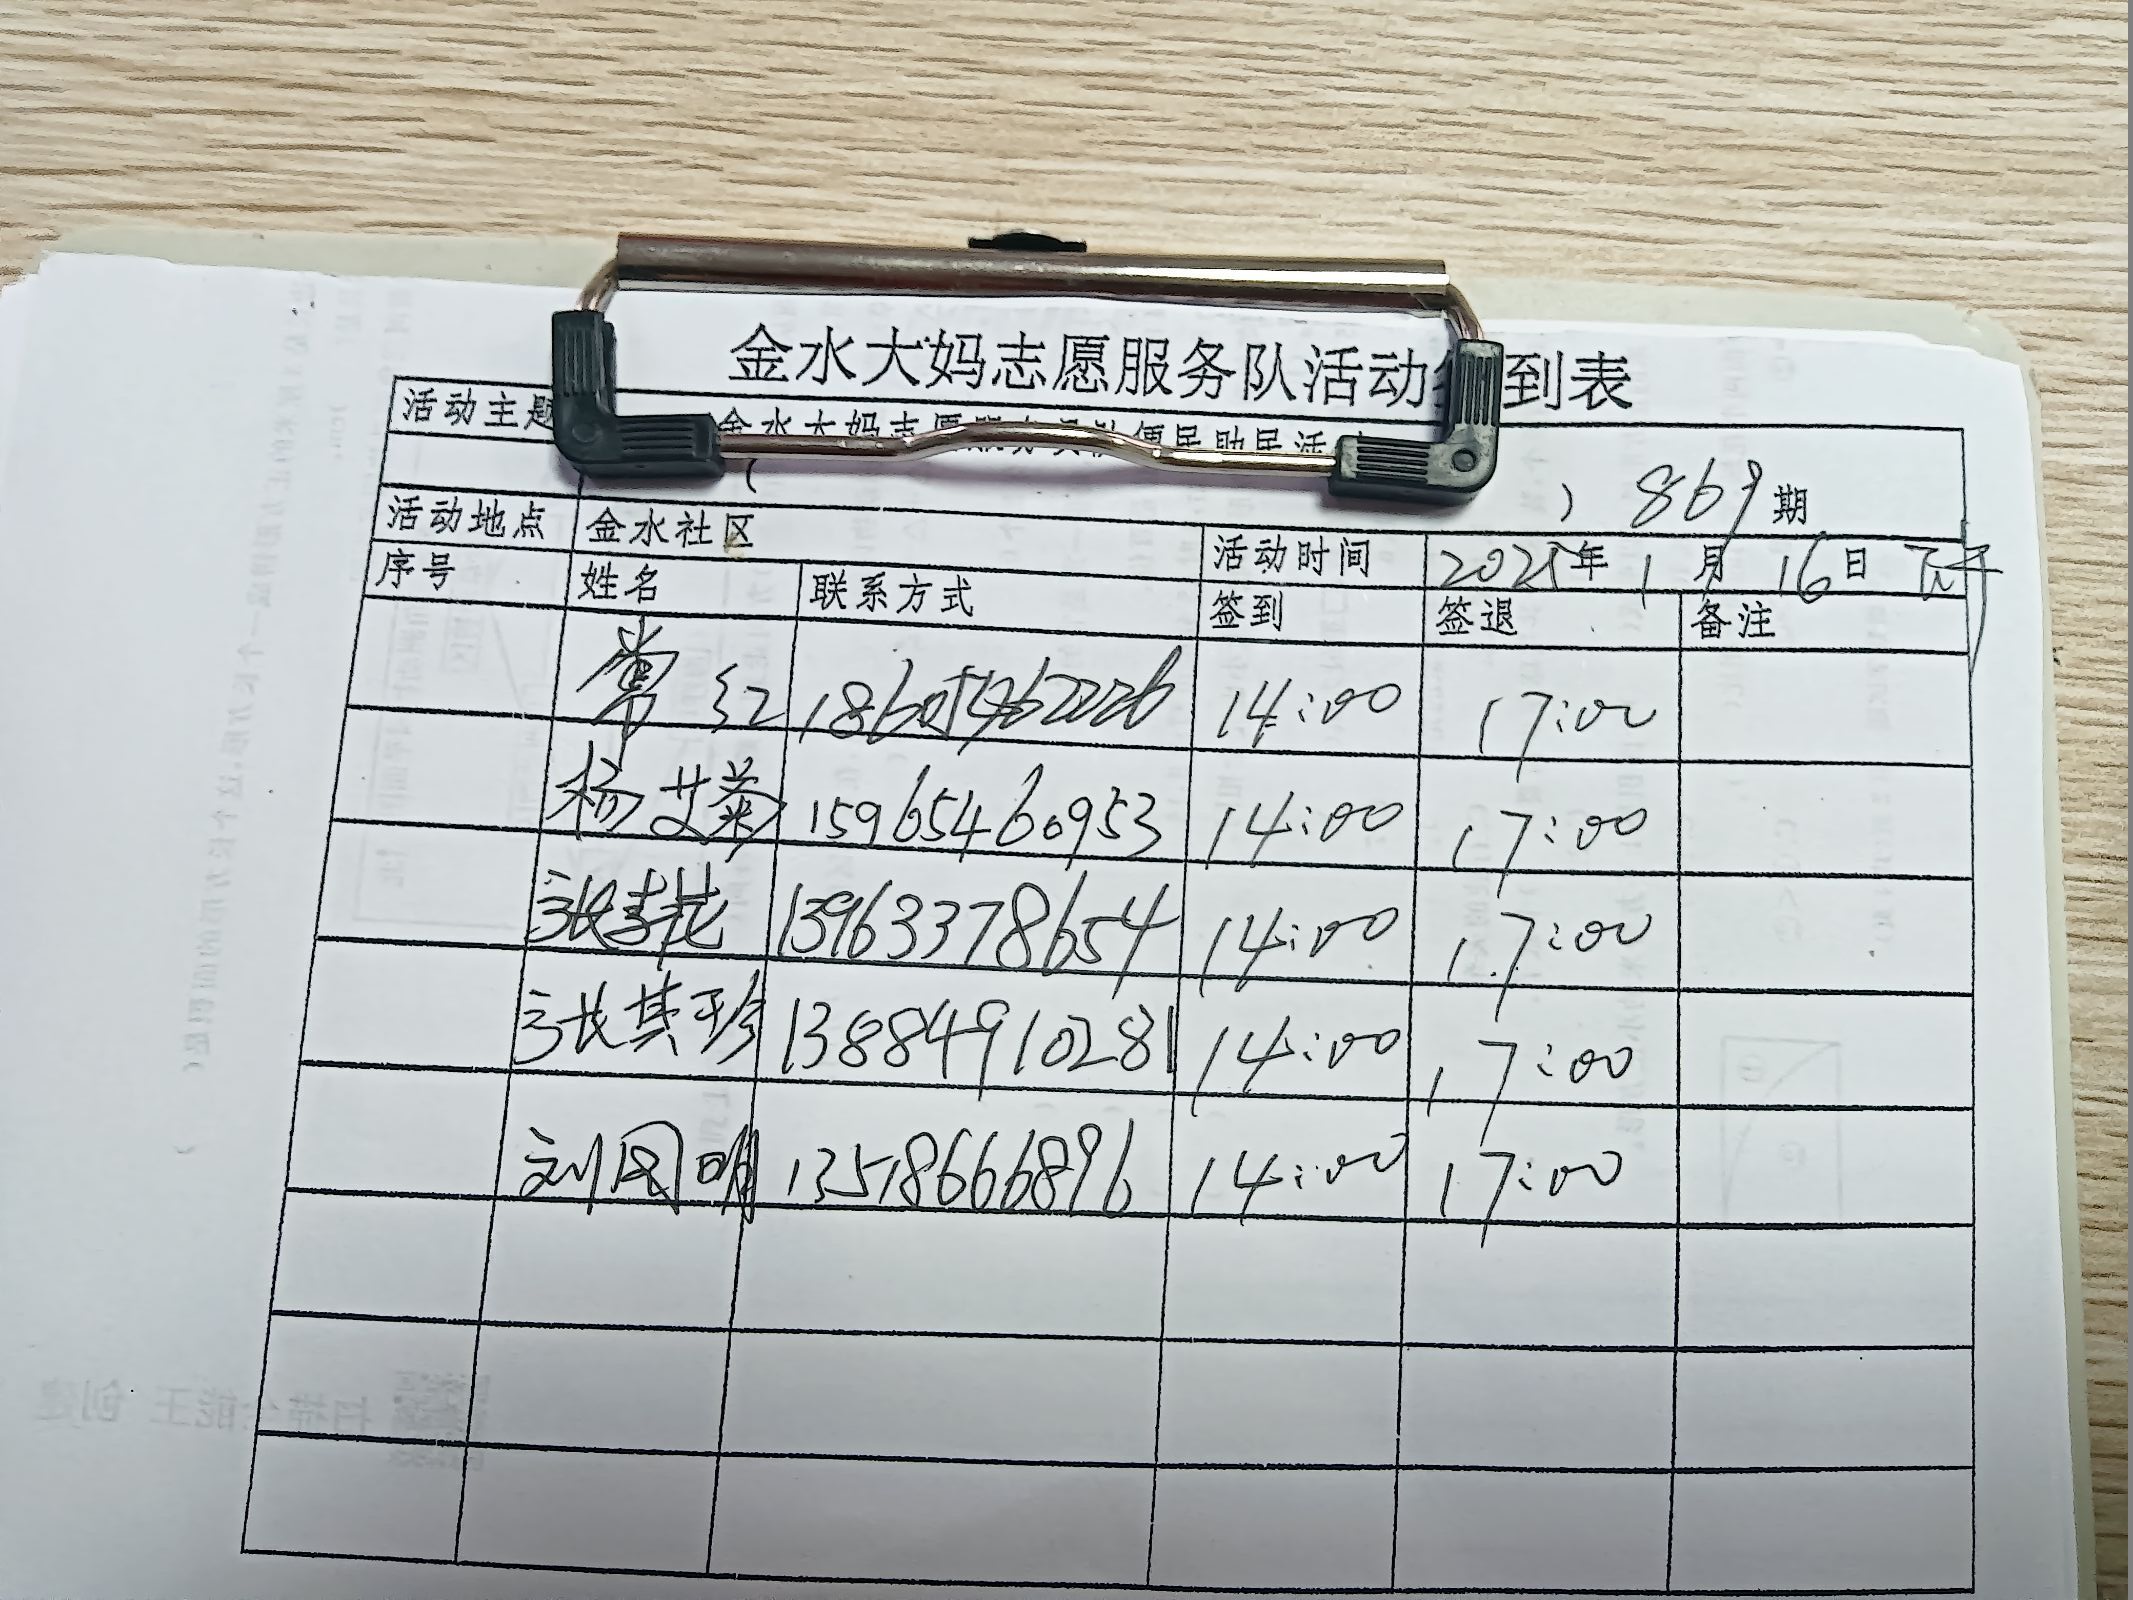 金水大妈志愿服务队活动 到表
活动主题 金水大妈志愿服 便民助民活
( ) 869期
活动地点 金水社区 活动时间 2025年1月16日 下午
序号 姓名 联系方式 签到 签退 备注
常红 18605462226 14:00 17:00
杨艾菊 15965460953 14:00 17:00
张李花 13963378654 14:00 17:00
张其珍 13884910281 14:00 17:00
刘国明 13518666896 14:00 17:00